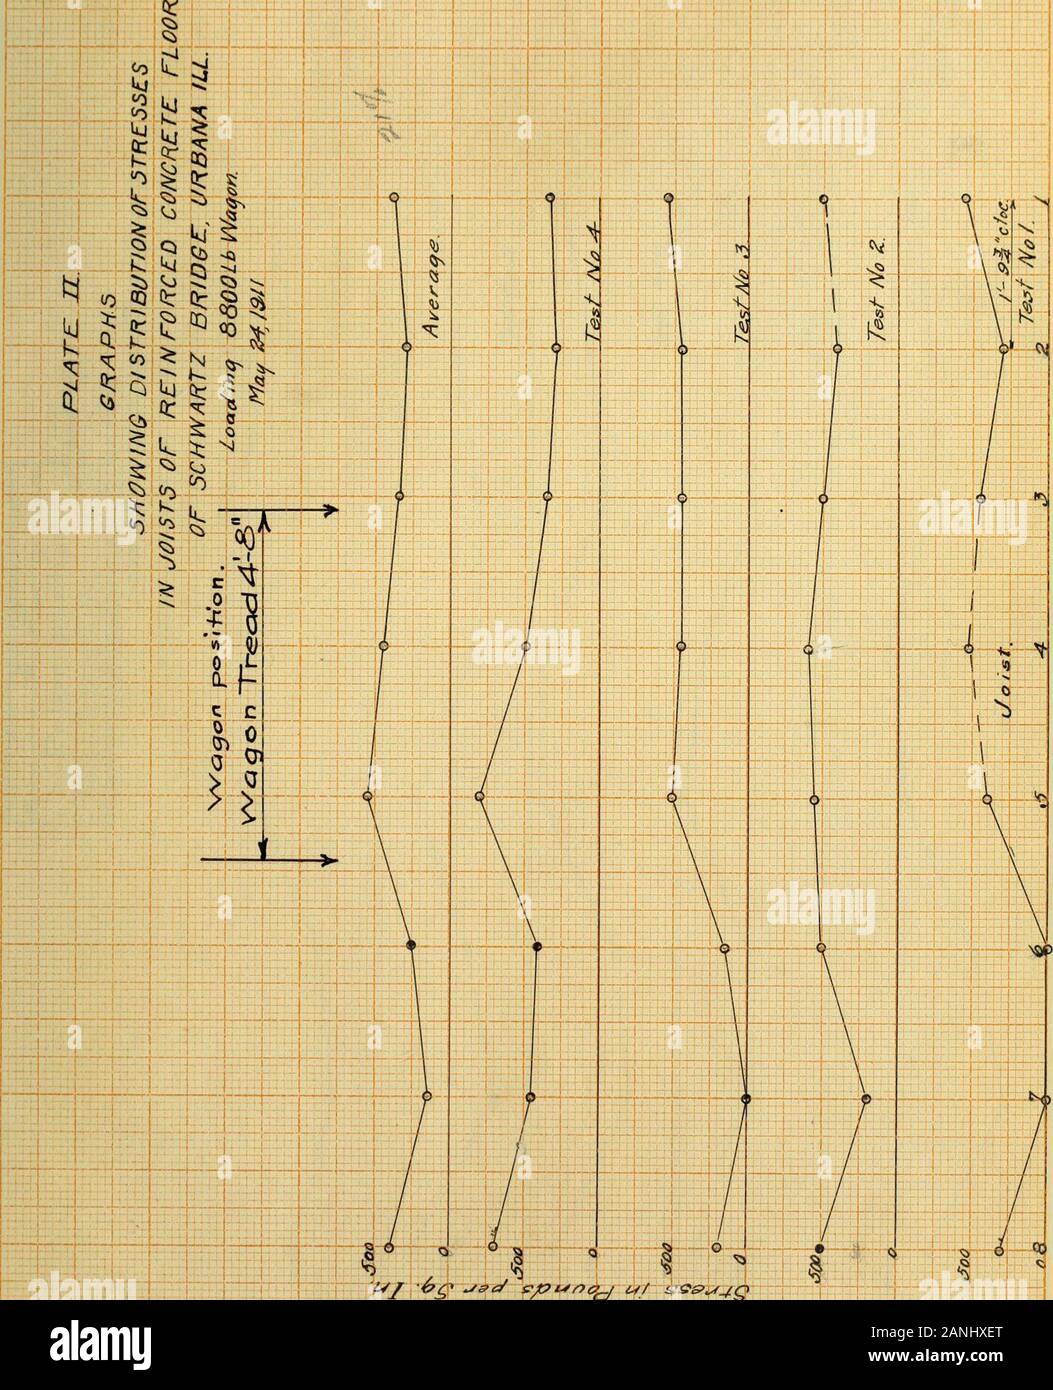 PLATE II.
GRAPHS
SHOWING DISTRIBUTION OF STRESSES
IN JOISTS OF REINFORCED CONCRETE FLOOR
OF SCHWARTZ BRIDGE, URBANA ILL.
Loading 8800Lb Wagon.
May 24, 1911
21%
Wagon position.
Wagon Tread 4'-8"
Average.
Test No 4
Test No 3
Test No 2.
1'-9¾" c to c.
Test No 1.
Joist.
8 7 6 5 4 3 2 1
500
0
500
0
500
0
500
0
500
0
Stress in Pounds per Sq. In.
alamy
Image ID: 2ANHXET
www.alamy.com